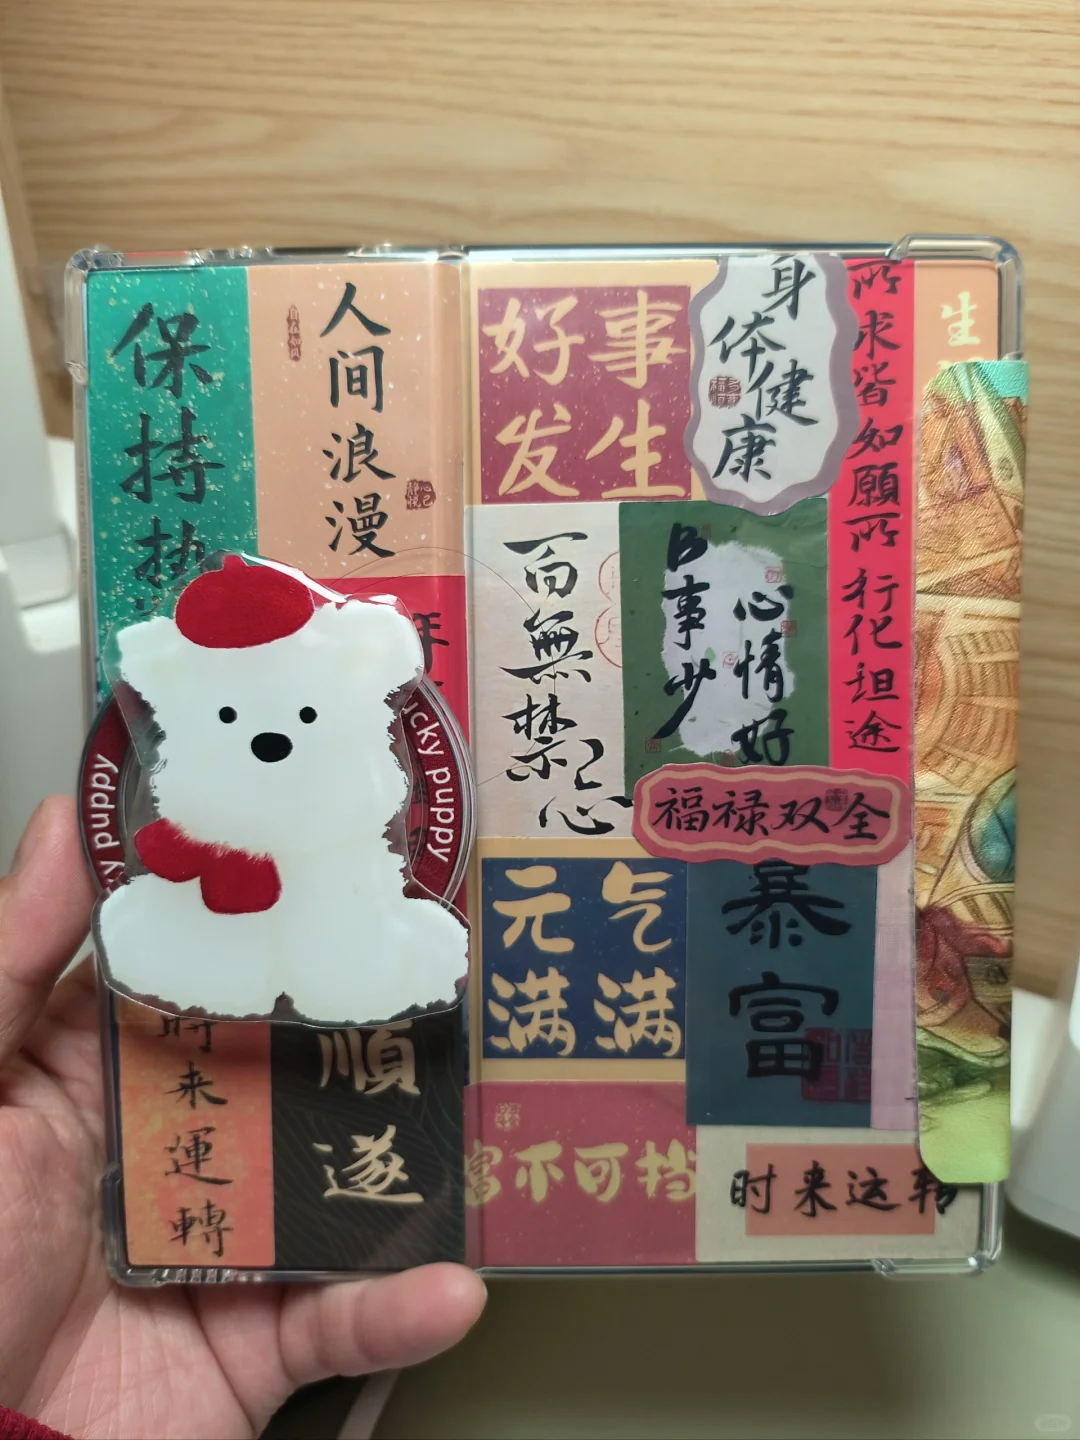 保持热
人间浪漫
年
lucky puppy
puppy
時来運轉
順遂
好事
发生
百無禁忌
身体健康
B事少
心情好
所求皆如願所行化坦途
生
福禄双全
元气
满满
暴富
富不可挡
时来运转